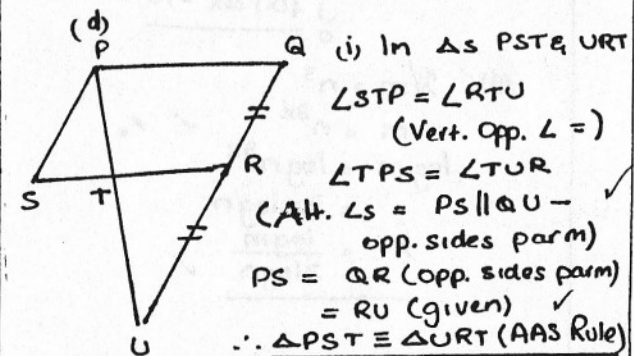 (d)
P
Q
S
T
R
U
(i) In Δs PST & URT
∠STP = ∠RTU
(Vert. Opp. ∠ =)
∠TPS = ∠TUR
(Alt. ∠s = PS||QU -
opp. sides parm)
PS = QR (opp. sides parm)
= RU (given)
∴ ΔPST ≡ ΔURT (AAS Rule)